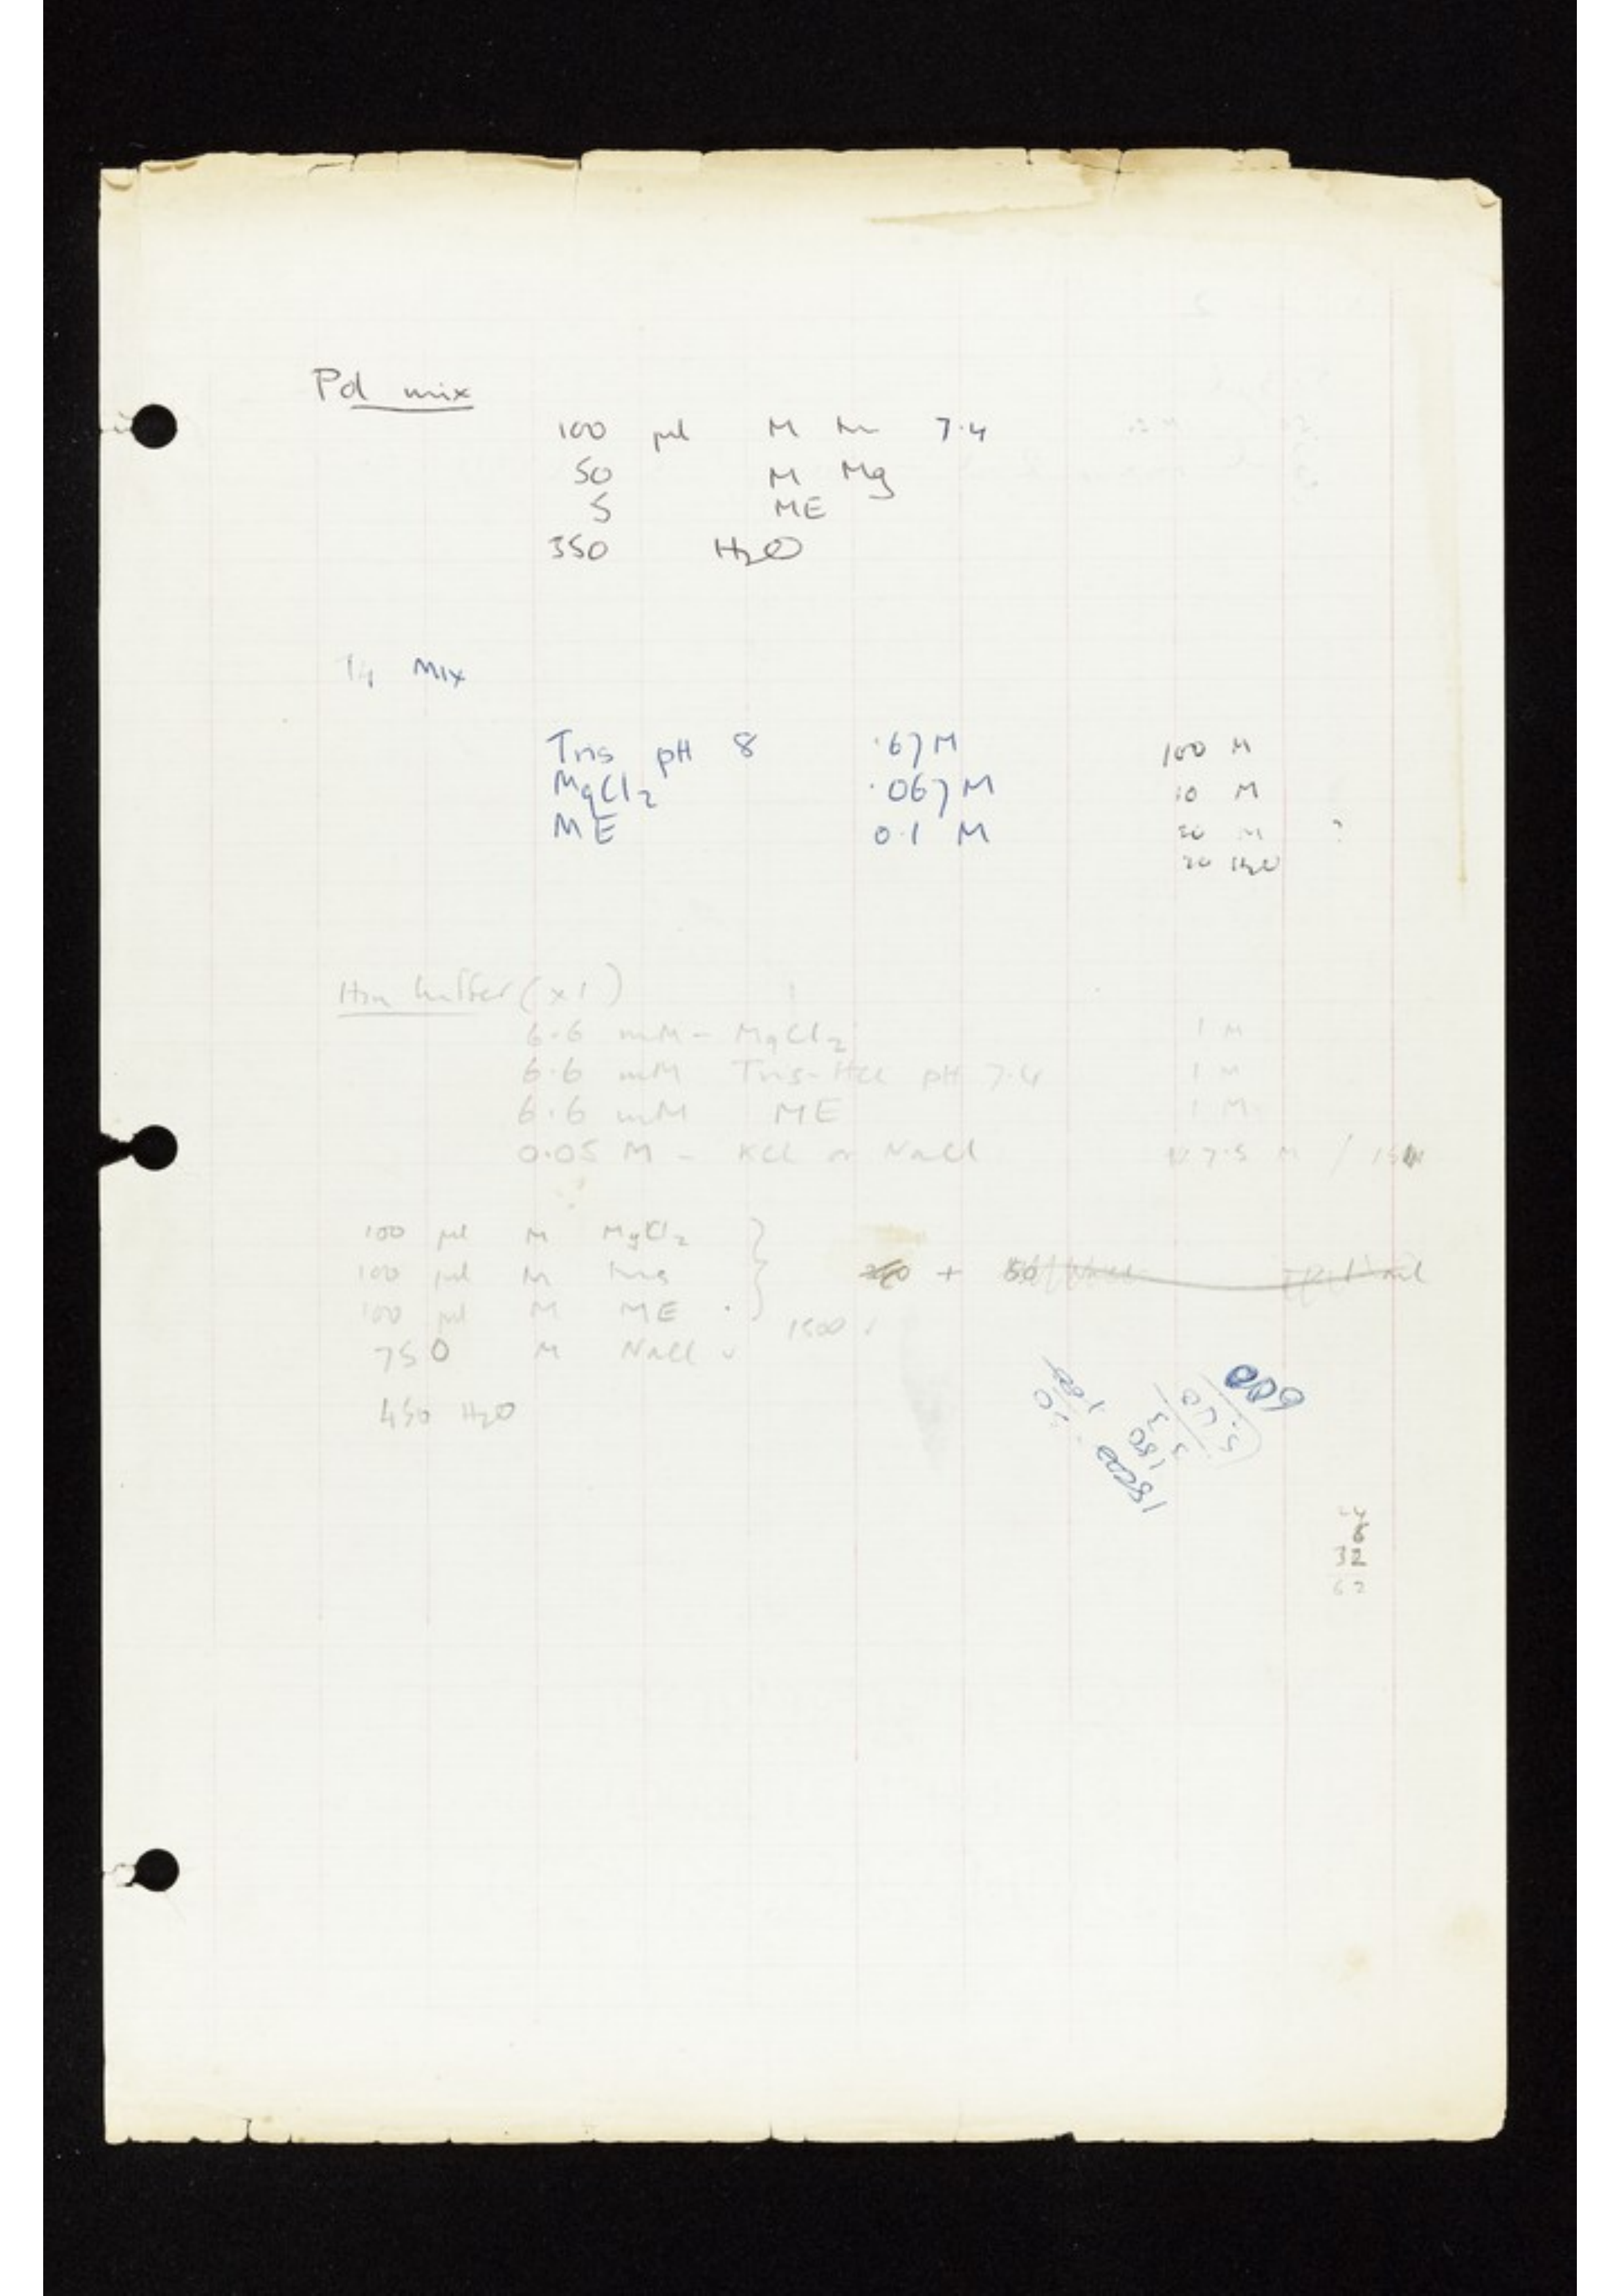 Pol mix
100 µl M tris 7.4
50 M Mg
5 ME
350 H2O
T4 Mix
Tris pH 8 .67 M 100 M
MgCl2 .067 M 10 M
ME 0.1 M M ?
20 H2O
Hin buffer (x1)
6.6 mM - MgCl2 1 M
6.6 mM Tris-HCl pH 7.4 1 M
6.6 mM ME 1 M
0.05 M - KCl or NaCl 7.5 M /
100 µl M MgCl2
100 µl M tris + 50
100 µl M ME
1500
750 M NaCl
450 H2O
600
180
1800
8
32
62